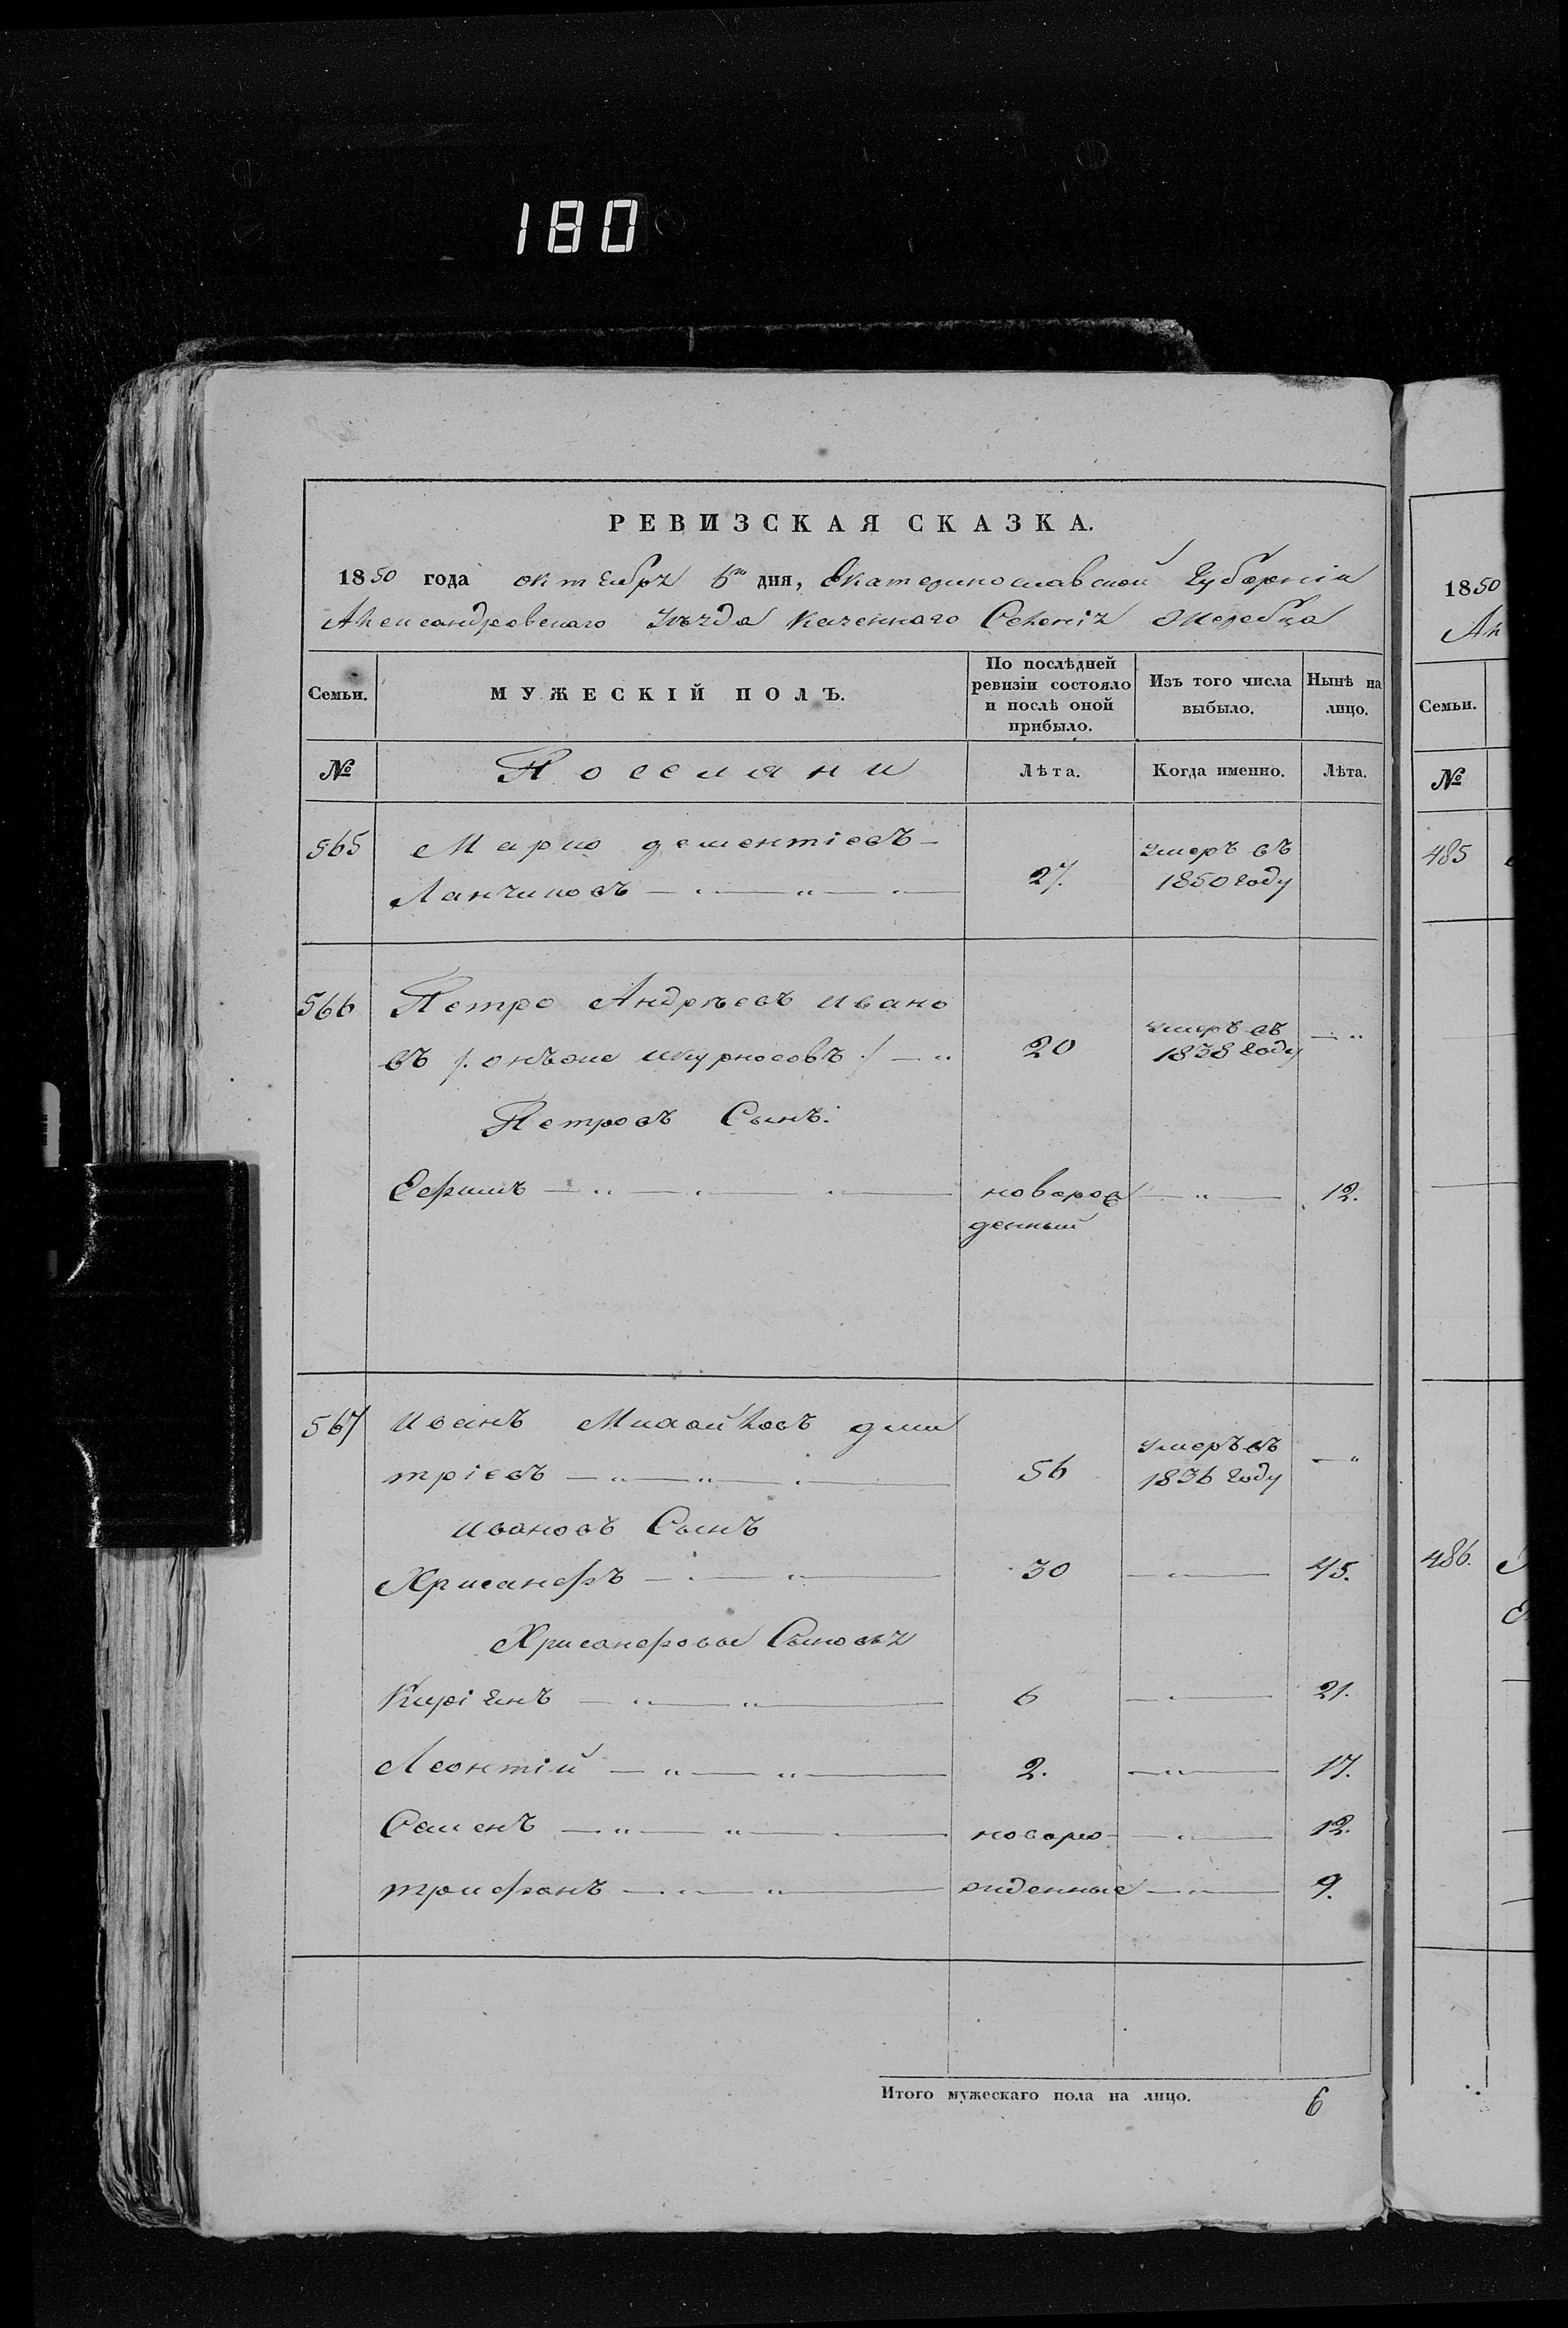 180
РЕВИЗСКАЯ СКАЗКА.
1850 года октября 6го дня, Екатеринославской Губерніи
Александровскаго Уѣзда Казеннаго Селенія Жеребца
Семьи.
МУЖЕСКІЙ ПОЛЪ.
По послѣдней ревизіи состояло и послѣ оной прибыло.
Изъ того числа выбыло.
Нынѣ на лицо.
№
Поселяни
Лѣта.
Когда именно.
Лѣта.
565 Марко дементіевъ -
умеръ въ
Ланчиковъ 27. 1850 году
566 Петро Андрѣевъ ивано
умеръ въ
въ /. онъже шкурносовъ ./ 20 1838 году
Петровъ Сынъ:
Ефимъ новорож 12.
денный
567 иванъ Михайловъ дми
умеръ въ
тріевъ 56 1836 году
ивановъ Сынъ
Хрисанфъ 30 45.
Хрисанфовы Сыновья
Киріянъ 6 21.
Леонтій 2. 17.
Семенъ новоро- 12.
трифонъ жденные 9.
Итого мужескаго пола на лицо. 6
1850
Ал
Семьи.
№
485
486.